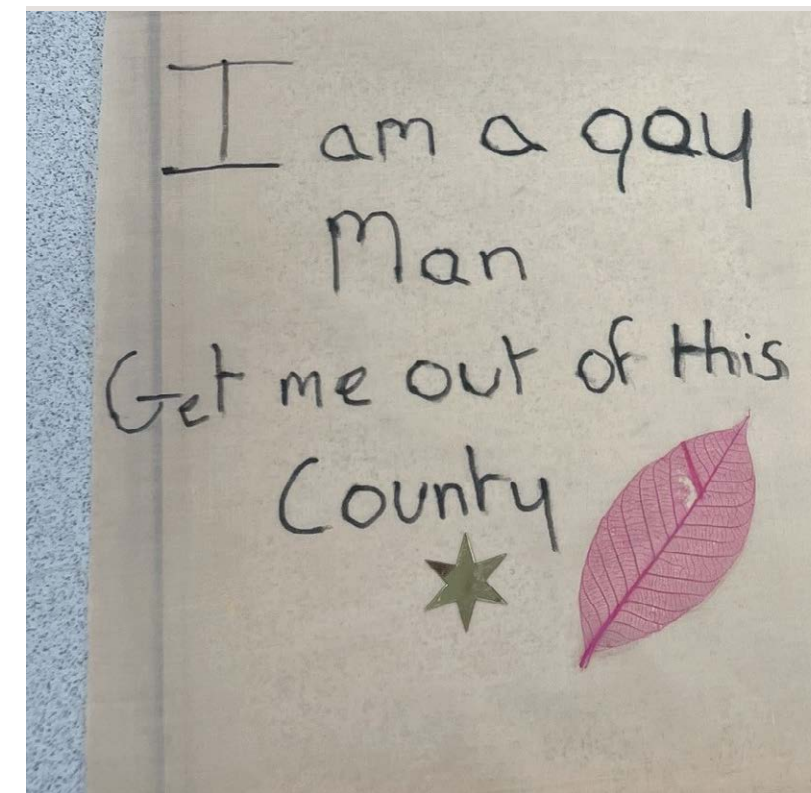 I am a gay
Man
Get me out of this
County